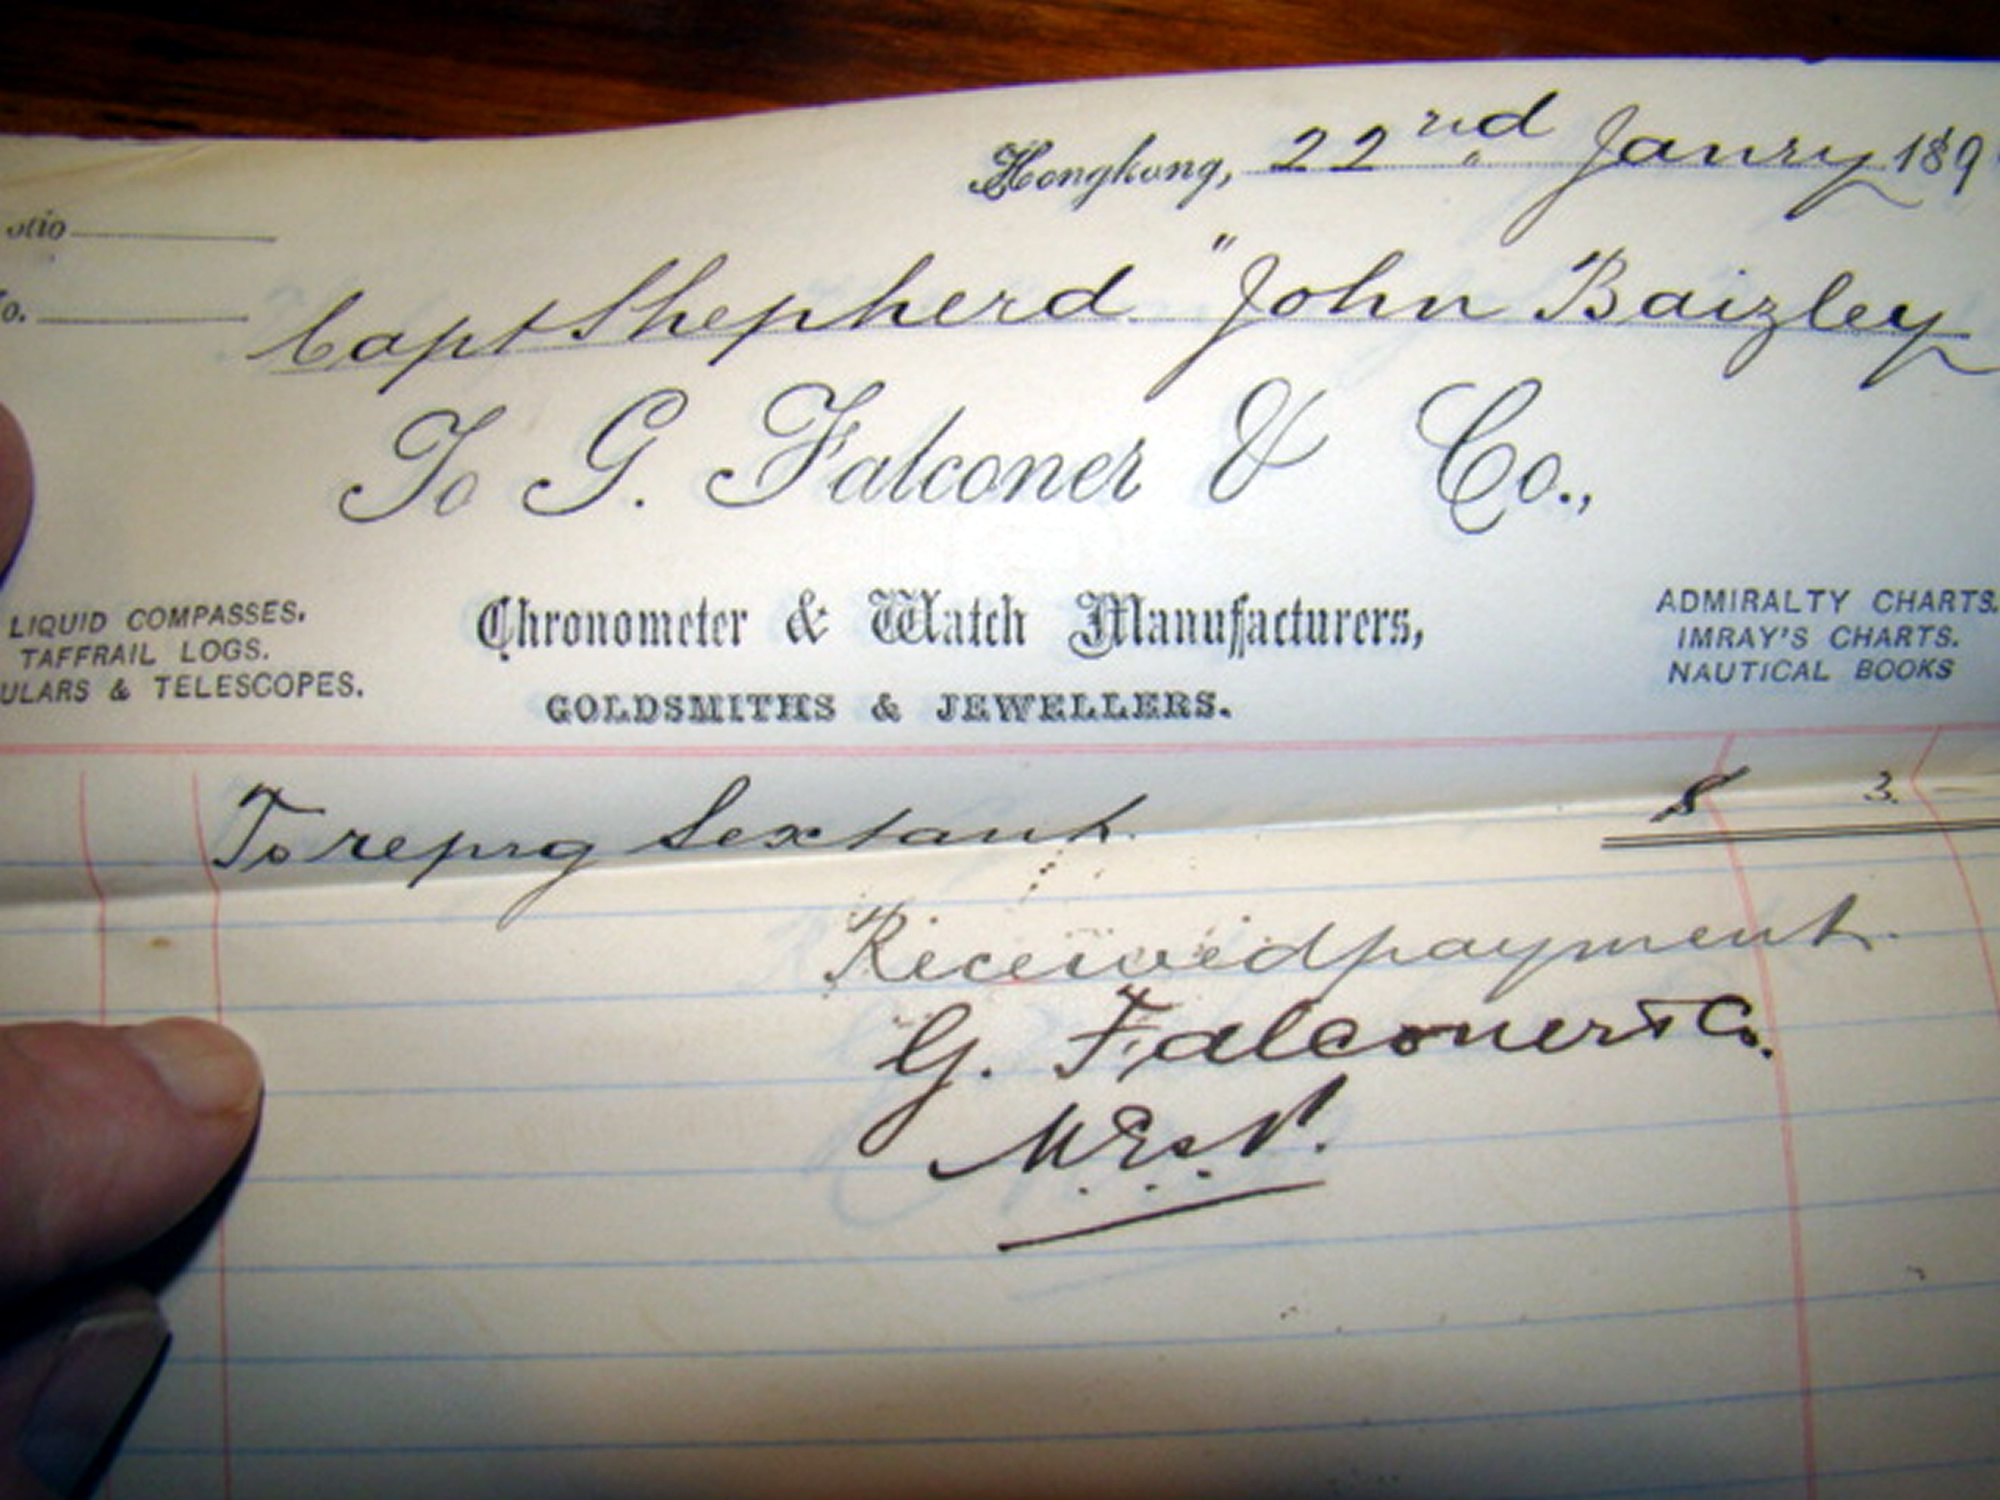 Hongkong, 22nd Janry 189
olio
o.
Capt Shepherd "John Baizley
To G. Falconer & Co.,
LIQUID COMPASSES.
TAFFRAIL LOGS.
ULARS & TELESCOPES.
Chronometer & Watch Manufacturers,
GOLDSMITHS & JEWELLERS.
ADMIRALTY CHARTS.
IMRAY'S CHARTS.
NAUTICAL BOOKS
To reprg Sextant. $ 3.
Received payment.
G. Falconer & Co.